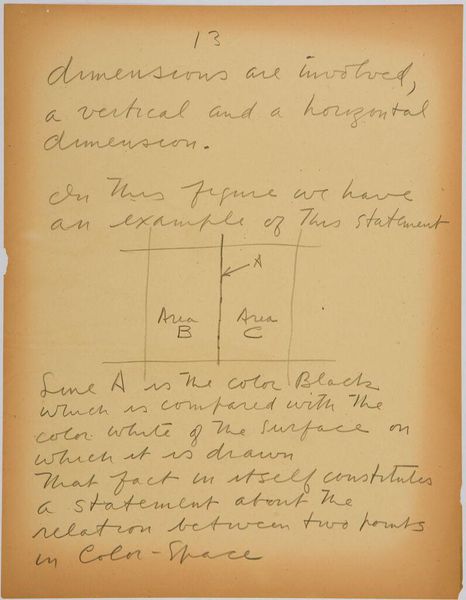 13
dimensions are involved,
a vertical and a horizontal
dimension.
In This figure we have
an example of This statement
A
Area
B
Area
C
Line A is the color Black
which is compared with the
color white of the surface on
which it is drawn
That fact in itself constitutes
a statement about the
relation between two points
in Color-Space